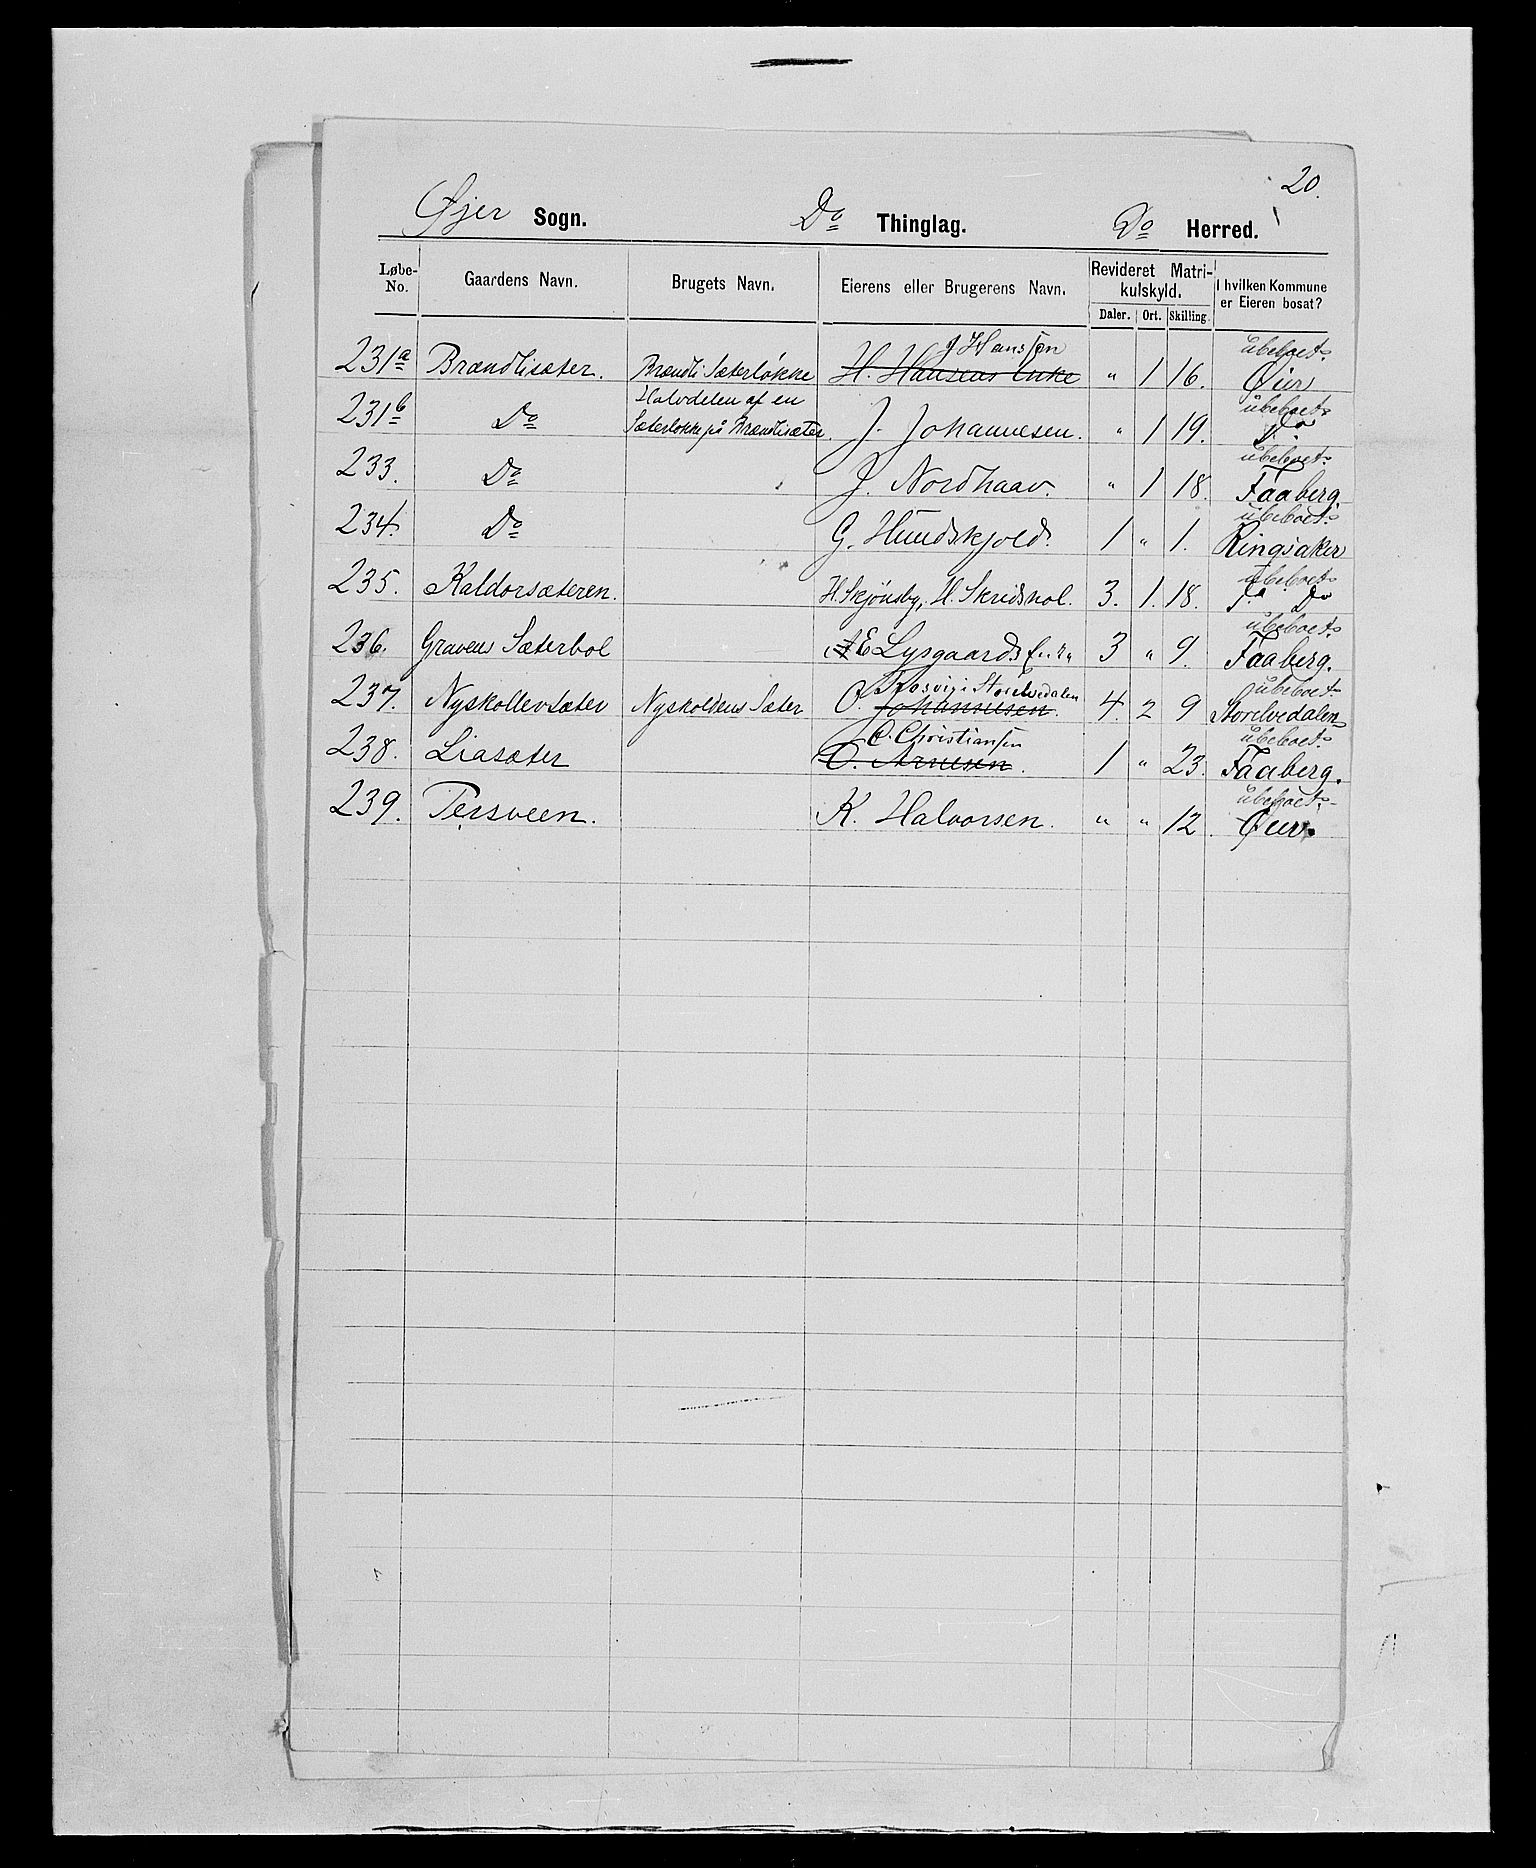 20.
Øjer Sogn. Do Thinglag. Do Herred.
Løbe-No. Gaardens Navn. Brugets Navn. Eierens eller Brugerens Navn. Revideret Matrikulskyld. I hvilken Kommune er Eieren bosat?
Daler. Ort. Skilling.
J Hanssøn ubeboet
231a Brændlisæter. Brændli Sæterløkke H. Hansens Enke " 1 16. Øier
Halvdelen af en ubeboet
231b Do Sæterløkke på Brændlisæter. J. Johannesen. " 1 19. Do
ubeboet
233. Do J. Nordhaav. " 1 18. Faaberg.
ubeboet
234. Do G. Hundskjold. 1 " 1. Ringsaker
ubeboet
235. Kaldorsæteren. H. Skjønsby, H. Skredshol. 3. 1. 18. Do
ubeboet
236. Gravens Sæterbol E Lysgaards Enke 3 " 9. Faaberg.
Frosvig i Storelvedalen ubeboet
237. Nyskollensæter Nyskoldens Sæter O. Johannesen. 4. 2 9 Storelvedalen
C. Christiansen ubeboet
238. Liasæter O. Arnesen. 1 " 23. Faaberg.
ubeboet
239. Persveen. K. Halvorsen. " " 12. Øier.